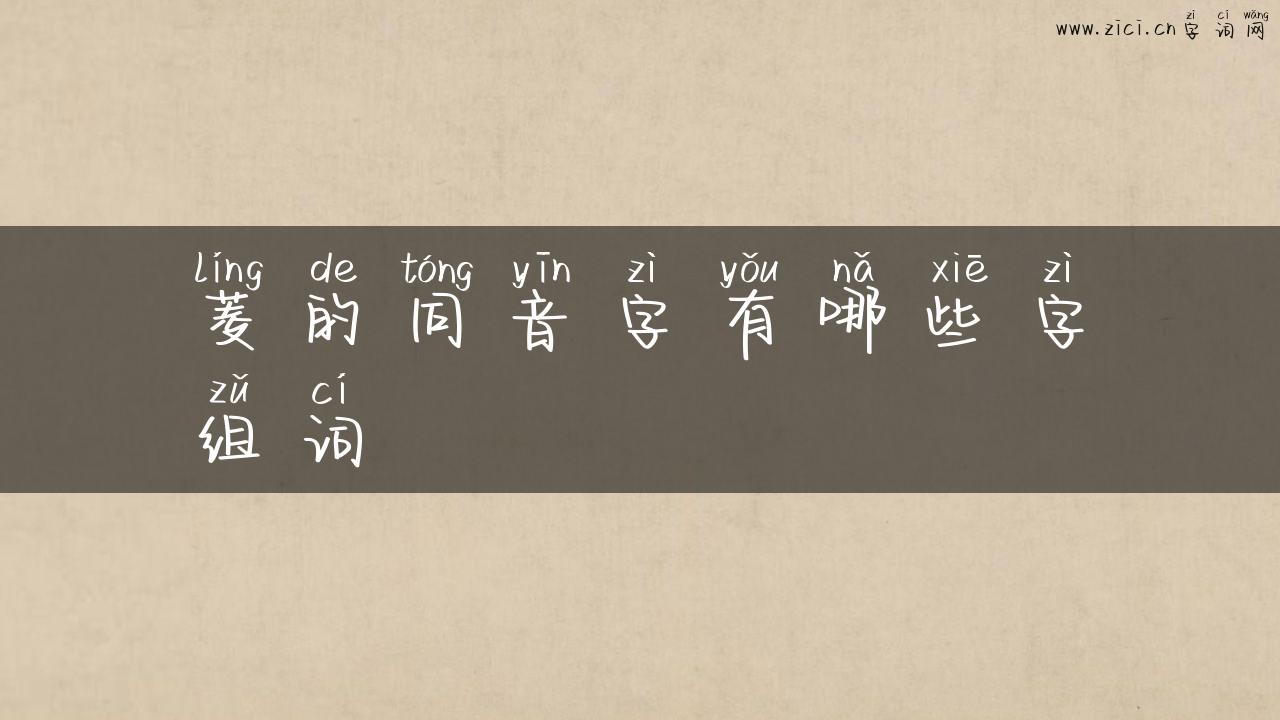 zì cí wǎng
www.zici.cn 字词网
líng de tóng yīn zì yǒu nǎ xiē zì
菱的同音字有哪些字
zǔ cí
组词